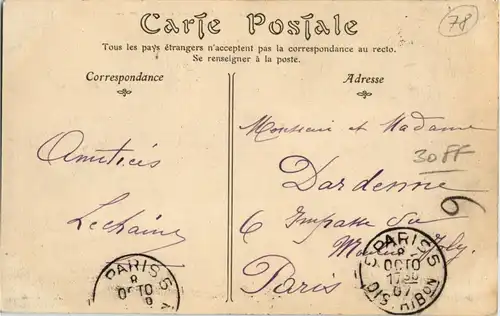 Carte Postale
78
Tous les pays étrangers n'acceptent pas la correspondance au recto.
Se renseigner à la poste.
Correspondance
Adresse
Amitiés
Lechaine
Monsieur et Madame
30FF
Dardenne
6 Impasse du
Paris
6
PARIS 5
8
OCTO
PARIS 5
8
OCTO
17 30
07
DISTRIBON